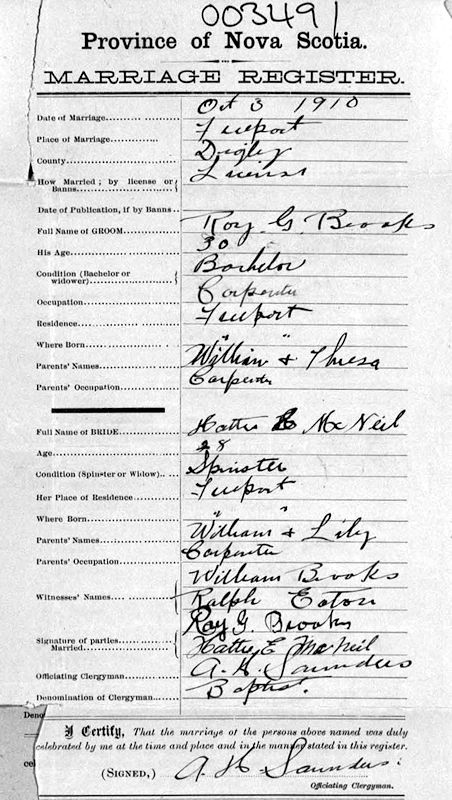 003491
Province of Nova Scotia.
MARRIAGE REGISTER.
Date of Marriage Oct 3 1910
Place of Marriage Freeport
County Digby
How Married; by license or Banns License
Date of Publication, if by Banns
Full Name of GROOM Roy G. Brooks
His Age 30
Condition (Bachelor or widower) Bachelor
Occupation Carpenter
Residence Freeport
Where Born " "
Parents' Names William & Thresa
Parents' Occupation Carpenter
Full Name of BRIDE Hattie E McNeil
Age 28
Condition (Spinster or Widow) Spinster
Her Place of Residence Freeport
Where Born " "
Parents' Names William & Lily
Parents' Occupation Carpenter
Witnesses' Names William Brooks
Ralph Eaton
Signature of parties Married Roy G. Brooks
Hattie E. McNeil
Officiating Clergyman A. H. Saunders
Denomination of Clergyman Baptist.
Deno
cel
I Certify, That the marriage of the persons above named was duly
celebrated by me at the time and place and in the manner stated in this register.
(SIGNED,) A H Saunders.
Officiating Clergyman.